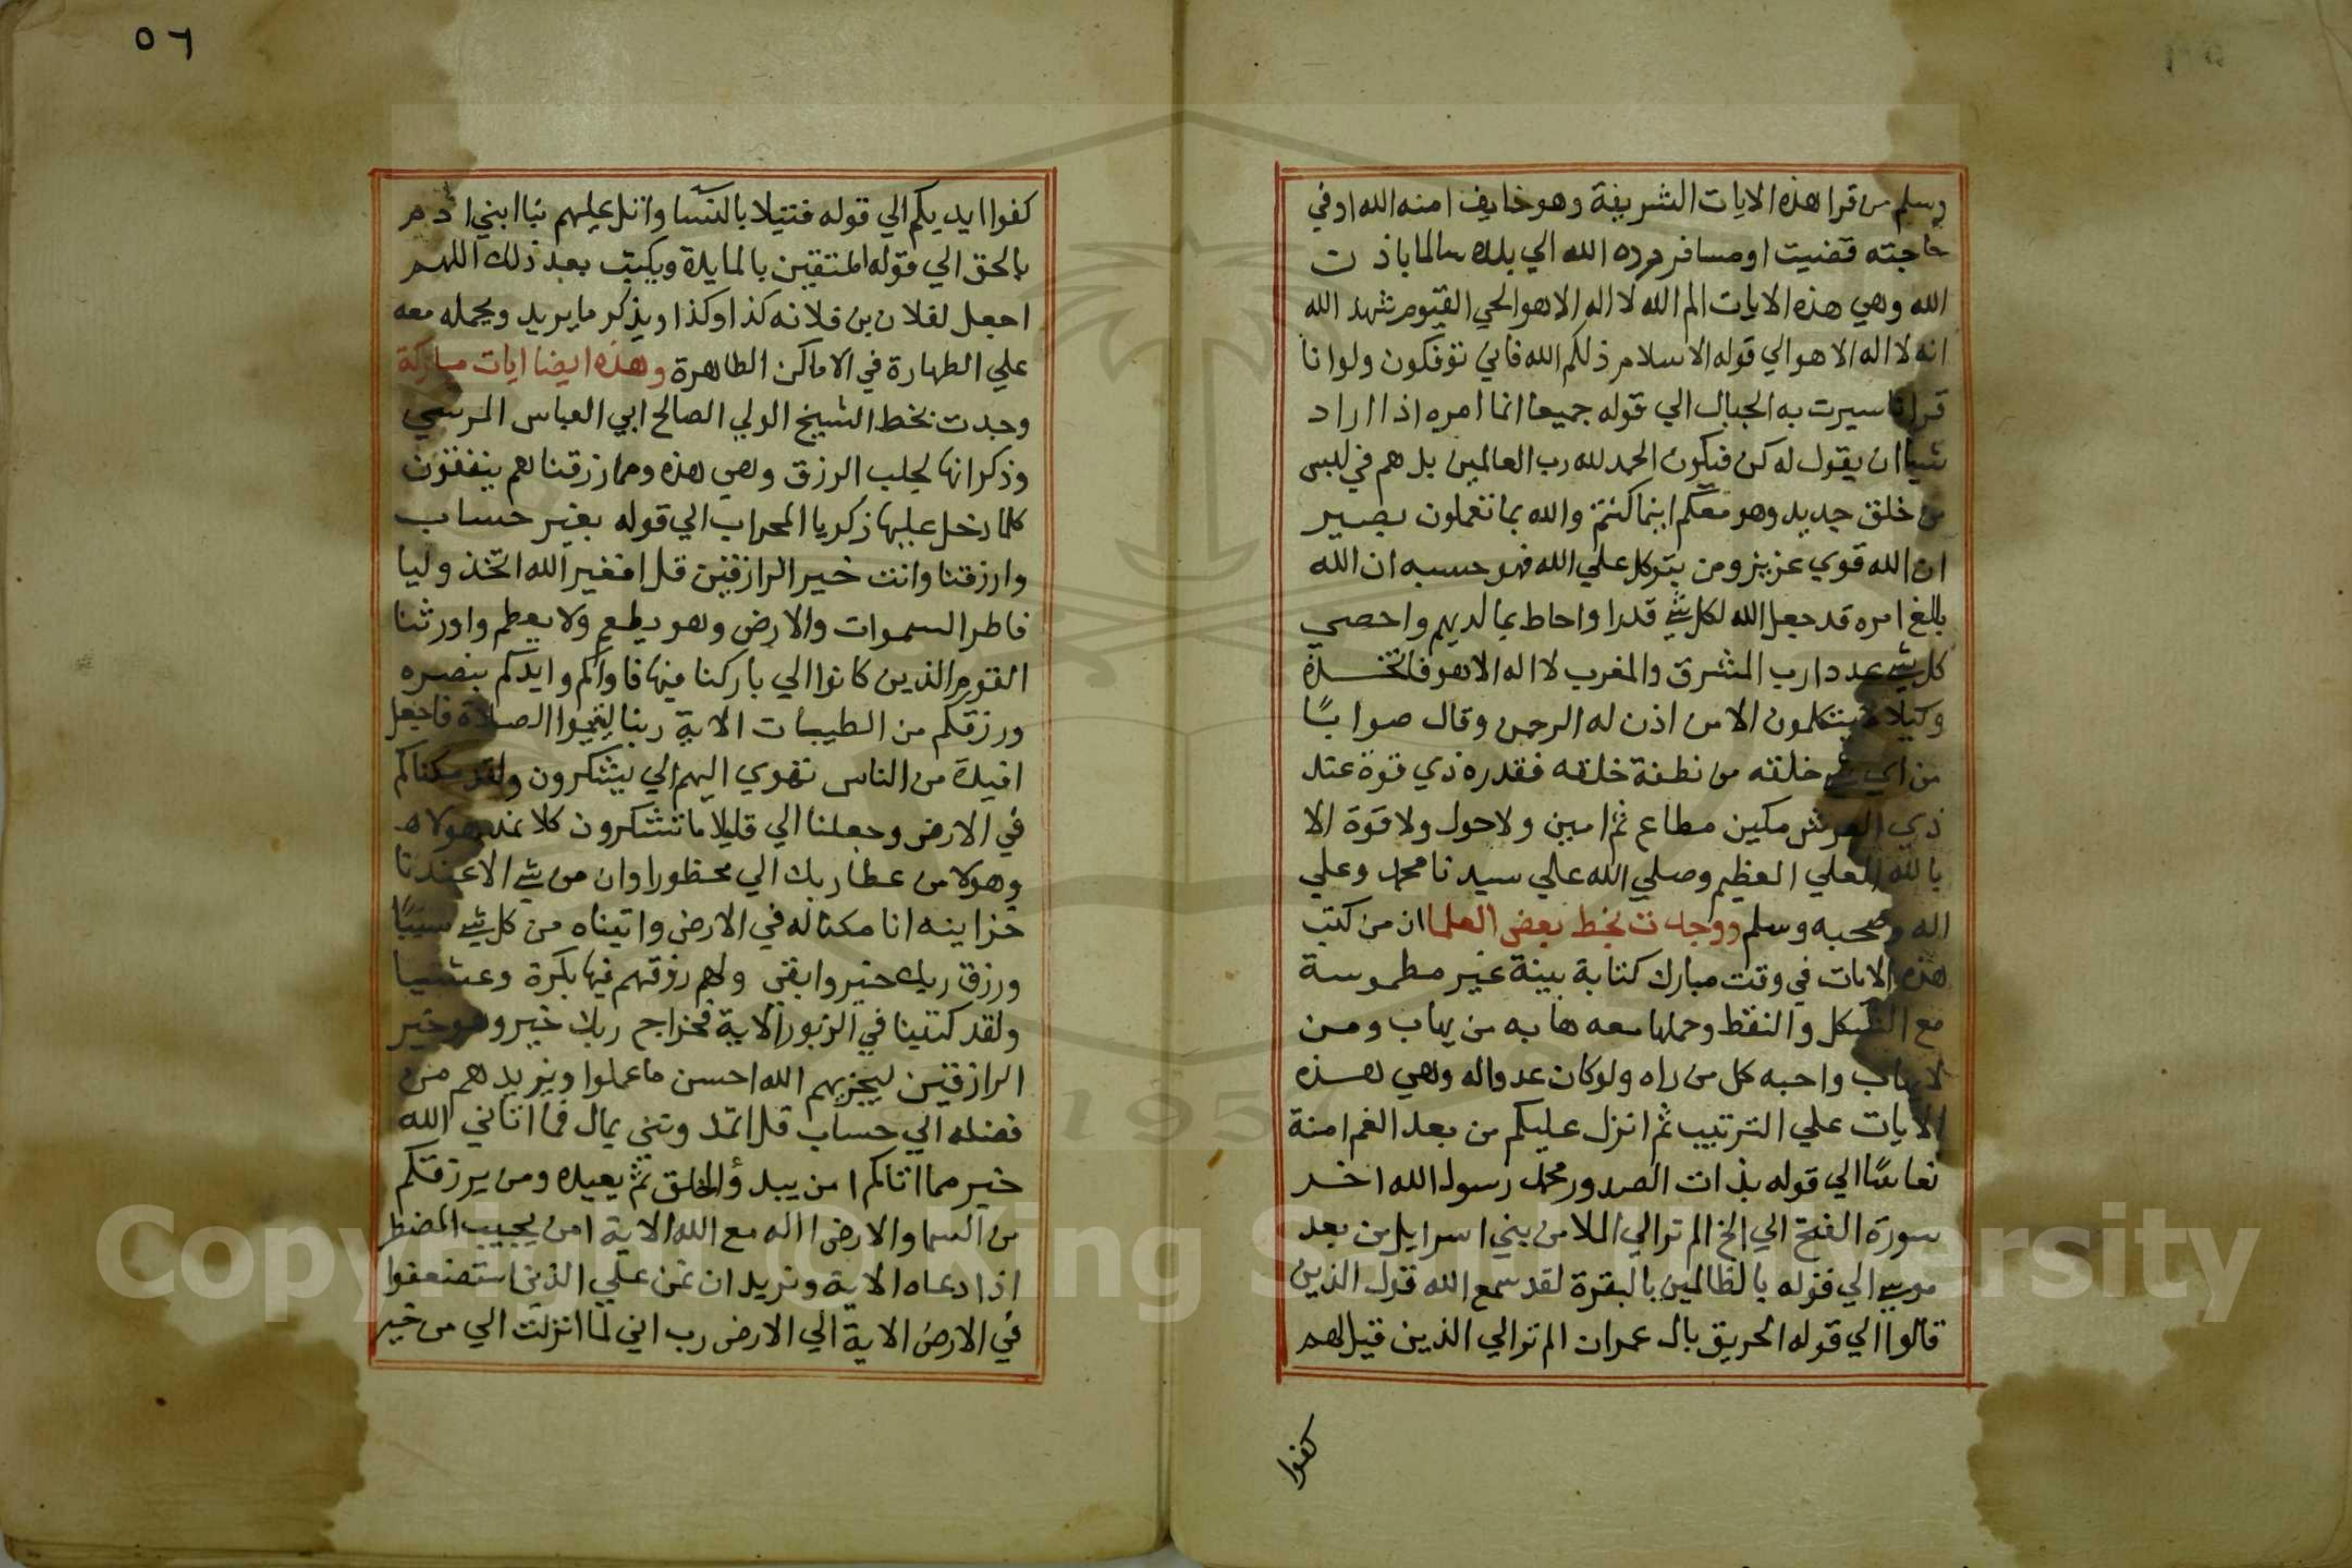 وسلم من قرا هذه الايات الشريفة وهو خايف امنه الله او في
حاجته قضيت او مسافر رده الله الي بلده سالما باذن
الله وهي هذه الايات الم الله لا اله الا هو الحي القيوم شهد الله
انه لا اله الا هو الي قوله الاسلام ذلكم الله فاني توفكون ولو انا
قرانا سيرت به الجبال الي قوله جميعا انما امره اذا اراد
شيا ان يقول له كن فيكون الحمد لله رب العالمين بل هم في لبس
من خلق جديد وهو معكم اينما كنتم والله بما تعملون بصير
ان الله قوي عزيز ومن يتوكل علي الله فهو حسبه ان الله
بالغ امره قد جعل الله لكل شي قدرا واحاط بما لديهم واحصي
كل شي عددا رب المشرق والمغرب لا اله الا هو فاتخذه
وكيلا لا يتكلمون الا من اذن له الرحمن وقال صوابًا
من اي شي خلقه من نطفة خلقه فقدره ذي قوة عند
ذي العرش مكين مطاع ثم امين ولا حول ولا قوة الا
بالله العلي العظيم وصلي الله علي سيدنا محمد وعلي
اله وصحبه وسلم ووجدت بخط بعض العلما ان من كتب
هذه الايات في وقت مبارك كتابة بينة غير مطموسة
مع الشكل والنقط وحملها معه هابه من يهاب ومن
لا يهاب واحبه كل من راه ولو كان عدوا له وهي هذه
الايات علي الترتيب ثم انزل عليكم من بعد الغم امنة
نعاسًا الي قوله بذات الصدور محمد رسول الله اخر
سورة الفتح الي الخ الم تر الي الملا من بني اسرايل من بعد
موسي الي قوله بالظالمين بالبقرة لقد سمع الله قول الذين
قالوا الي قوله الحريق بال عمران الم تر الي الذين قيل لهم
كفوا
٥٦
كفوا ايديكم الي قوله فتيلا بالنسا واتل عليهم نبا ابني ادم
بالحق الي قوله المتقين بالمايدة ويكتب بعد ذلك اللهم
اجعل لفلان بن فلانه كذا وكذا ويذكر ما يريد ويحمله معه
علي الطهارة في الاماكن الطاهرة وهذه ايضا ايات مباركة
وجدت بخط الشيخ الولي الصالح ابي العباس المرسي
وذكر انها لجلب الرزق وهي هذه ومما رزقنا هم ينفقون
كلما دخل عليها زكريا المحراب الي قوله بغير حساب
وارزقنا وانت خير الرازقين قل افغير الله اتخذ وليا
فاطر السموات والارض وهو يطعم ولا يطعم واورثنا
القوم الذين كانوا الي باركنا فيها فاواكم وايدكم بنصره
ورزقكم من الطيبات الاية ربنا ليقيموا الصلاة فاجعل
افيدة من الناس تهوي اليهم الي يشكرون ولقد مكناكم
في الارض وجعلنا الي قليلا ما تشكرون كلا نمد هولاء
وهولا من عطا ربك الي محظورا وان من شي الا عندنا
خزاينه انا مكنا له في الارض واتيناه من كل شي سببًا
ورزق ربك خير وابقي ولهم رزقهم فيها بكرة وعشيا
ولقد كتبنا في الزبور الاية فخراج ربك خير وهو خير
الرازقين ليجزيهم الله احسن ما عملوا ويزيدهم من
فضله الي حساب قل اتمدونني بمال فما اتاني الله
خير مما اتاكم امن يبدؤ الخلق ثم يعيده ومن يرزقكم
من السما والارض االه مع الله الاية امن يجيب المضطر
اذا دعاه الاية ونريد ان نمن علي الذين استضعفوا
في الارض الاية الي الارض رب اني لما انزلت الي من خير
Copyright © King Saud University
1957